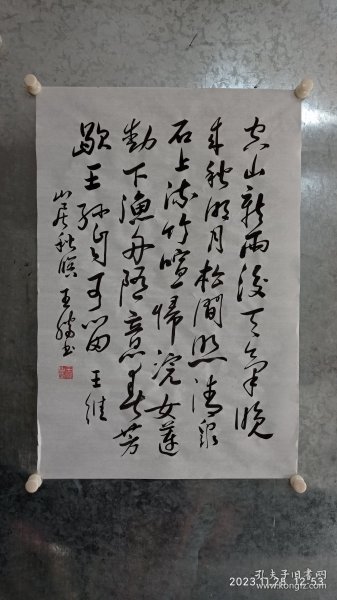 空山新雨後天氣晚
來秋明月松間照清泉
石上流竹喧帰浣女蓮
動下漁舟隨意春芳
歇王孫自可留 王維
山居秋暝 王書
2023.11.28 12:53
孔夫子旧书网
www.kongfz.com